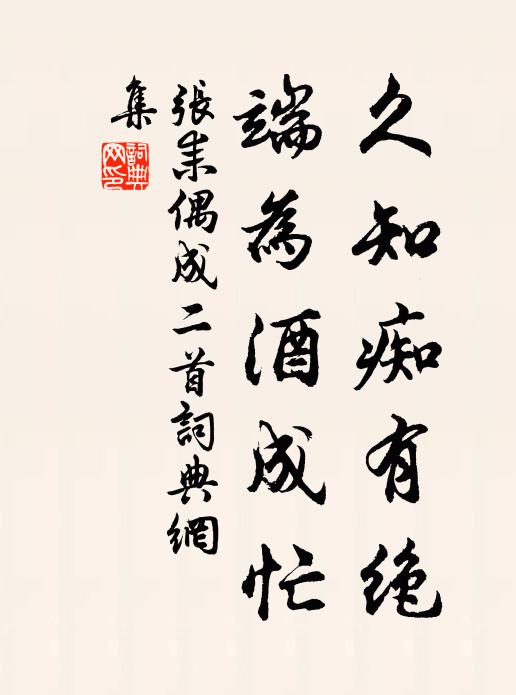 久知痴有绝
端為酒成忙
張耒偶成二首詞典網
集
詞典網印